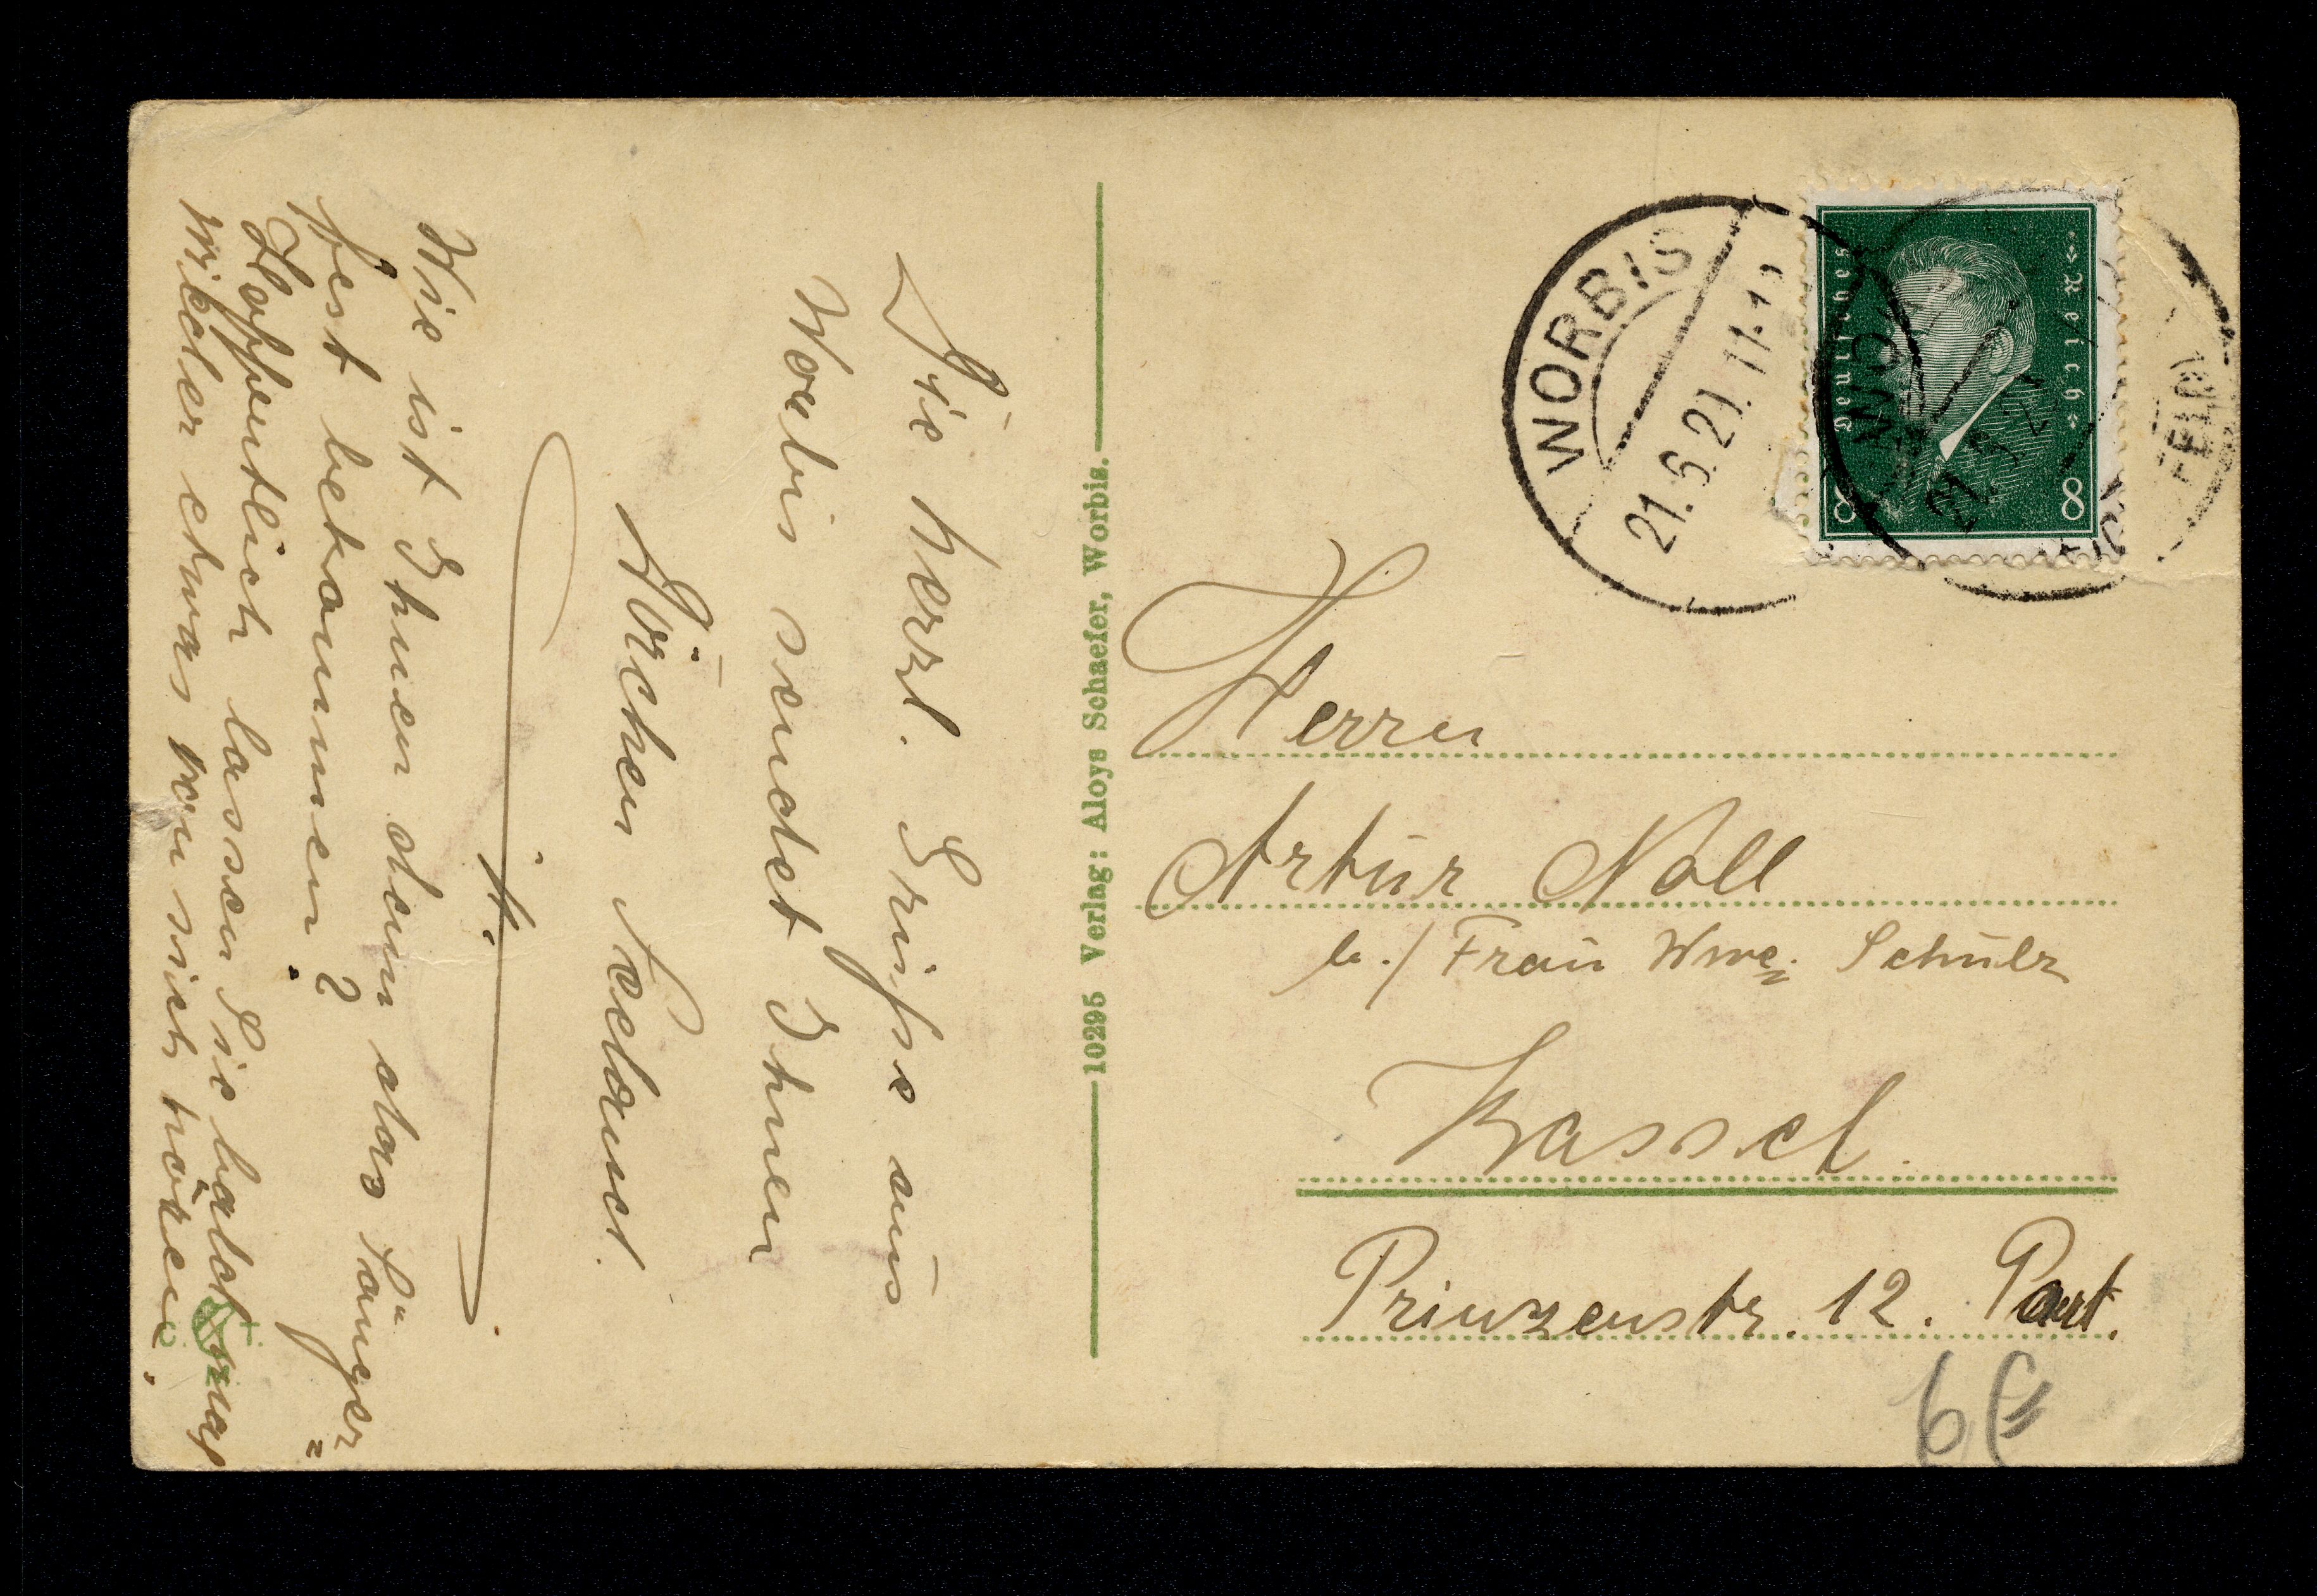 Die herzl. Grüsse aus
Worbis sendet Ihnen
Dörchen
Wie ist Ihnen denn das Sänger=
fest bekommen?
Hoffentlich lassen Sie bald mal
wieder etwas von sich hören.
10295 Verlag: Aloys Schaefer, Worbis.
WORBIS
21.6.29.11-1
Deutsches Reich
8 8
Herrn
Artur Noll
b./ Frau Wwe. Schulz
Kassel.
Prinzenstr. 12. Part.
6 €